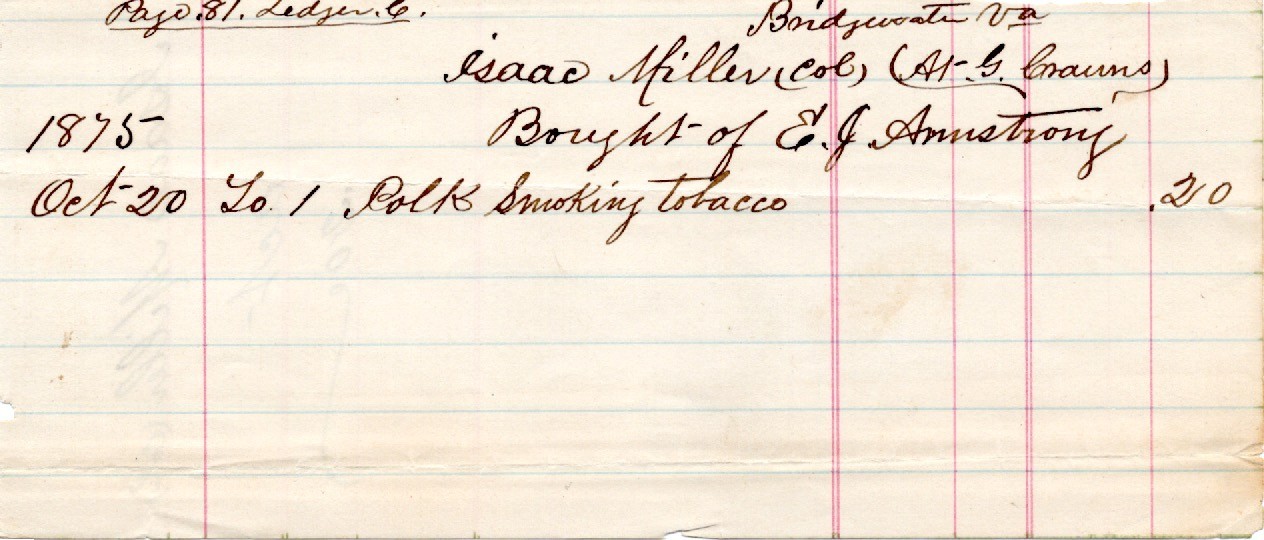 Page 81. Ledger. C.
Bridgwater Va
Isaac Miller (Col) (At G. Crauns)
1875 Bought of E. J. Armstrong
Oct 20 To 1 Polk Smoking tobacco .20